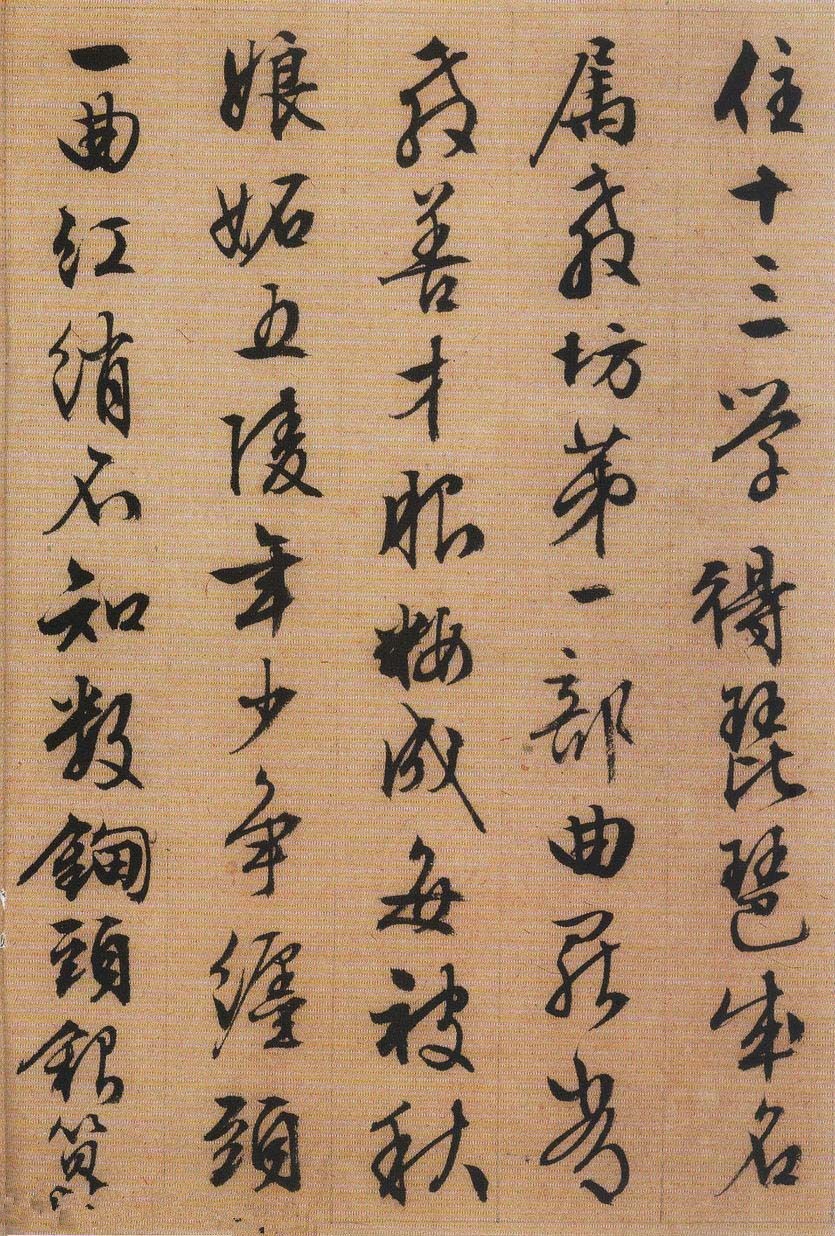 住十三学得琵琶成名
属教坊第一部曲罷曾
教善才服粧成每被秋
娘妬五陵年少争纏頭
一曲紅綃不知数鈿頭銀篦